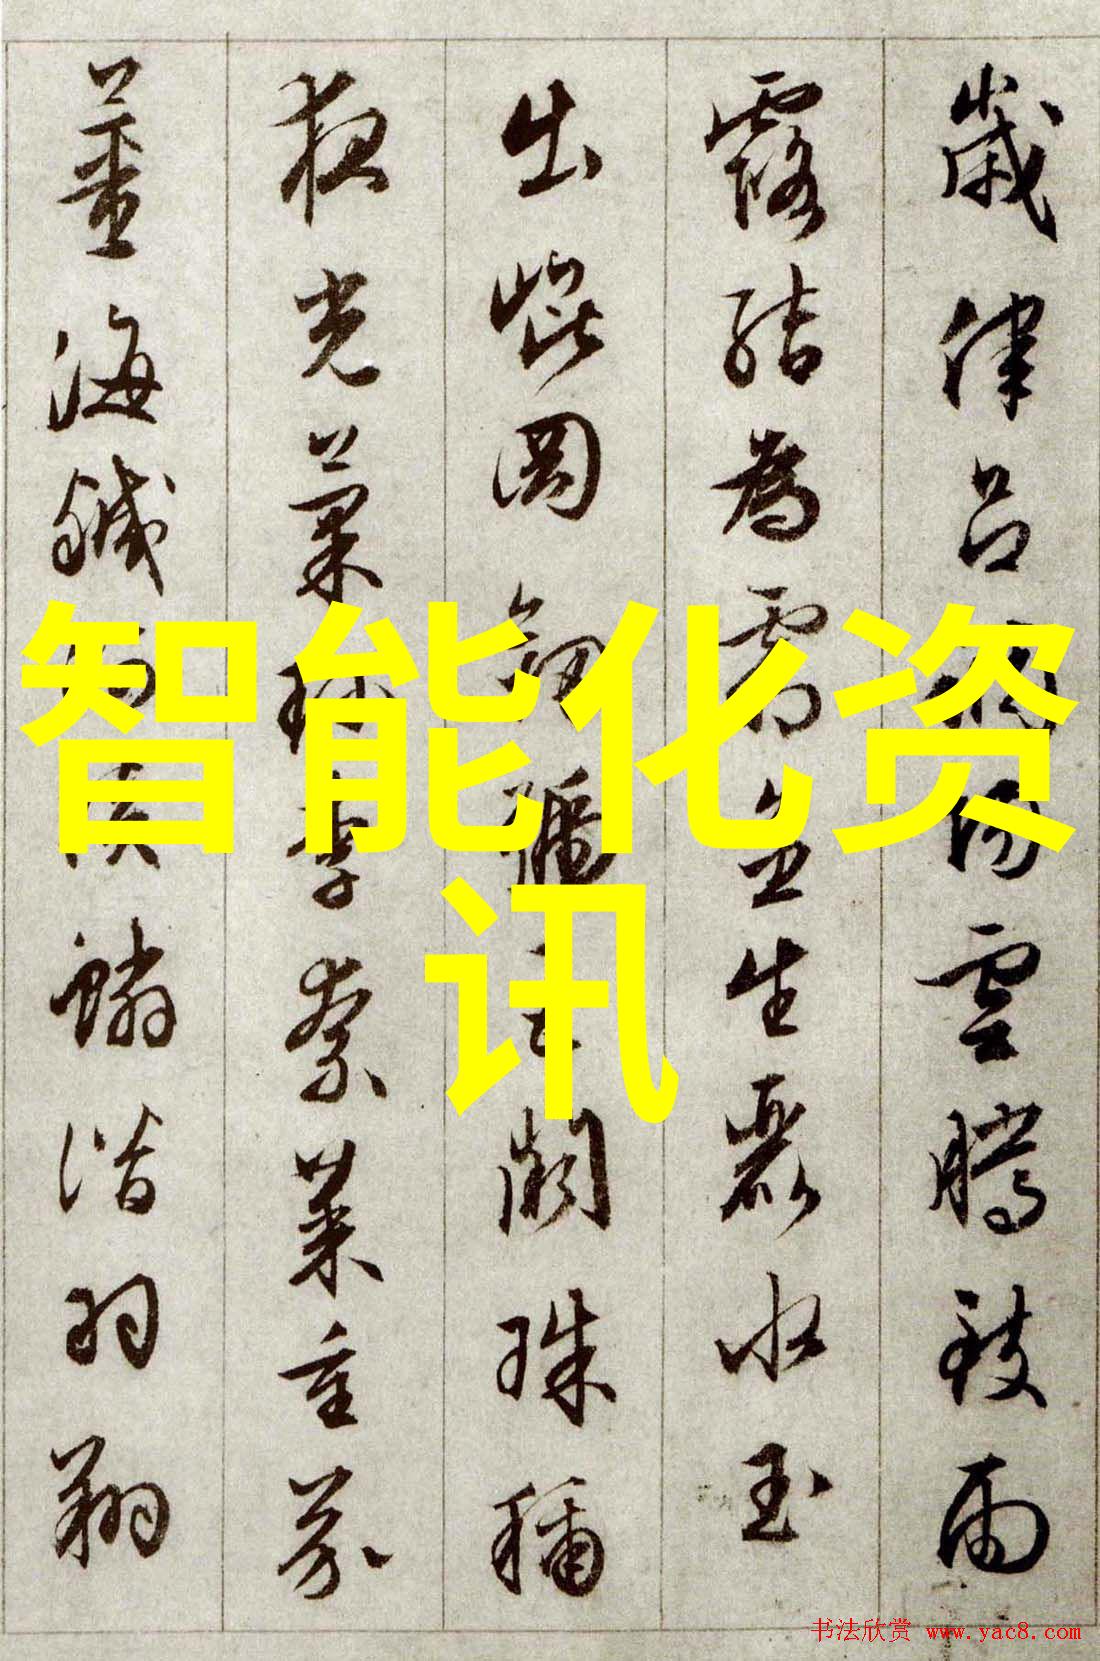 歲律呂調陽雲騰致雨
露結為霜金生麗水玉
出崐岡劍號巨闕珠稱
夜光菓珍李柰菜重芥
薑海鹹河淡鱗潛羽翔
智能化资
讯
书法欣赏 www.yac8.com